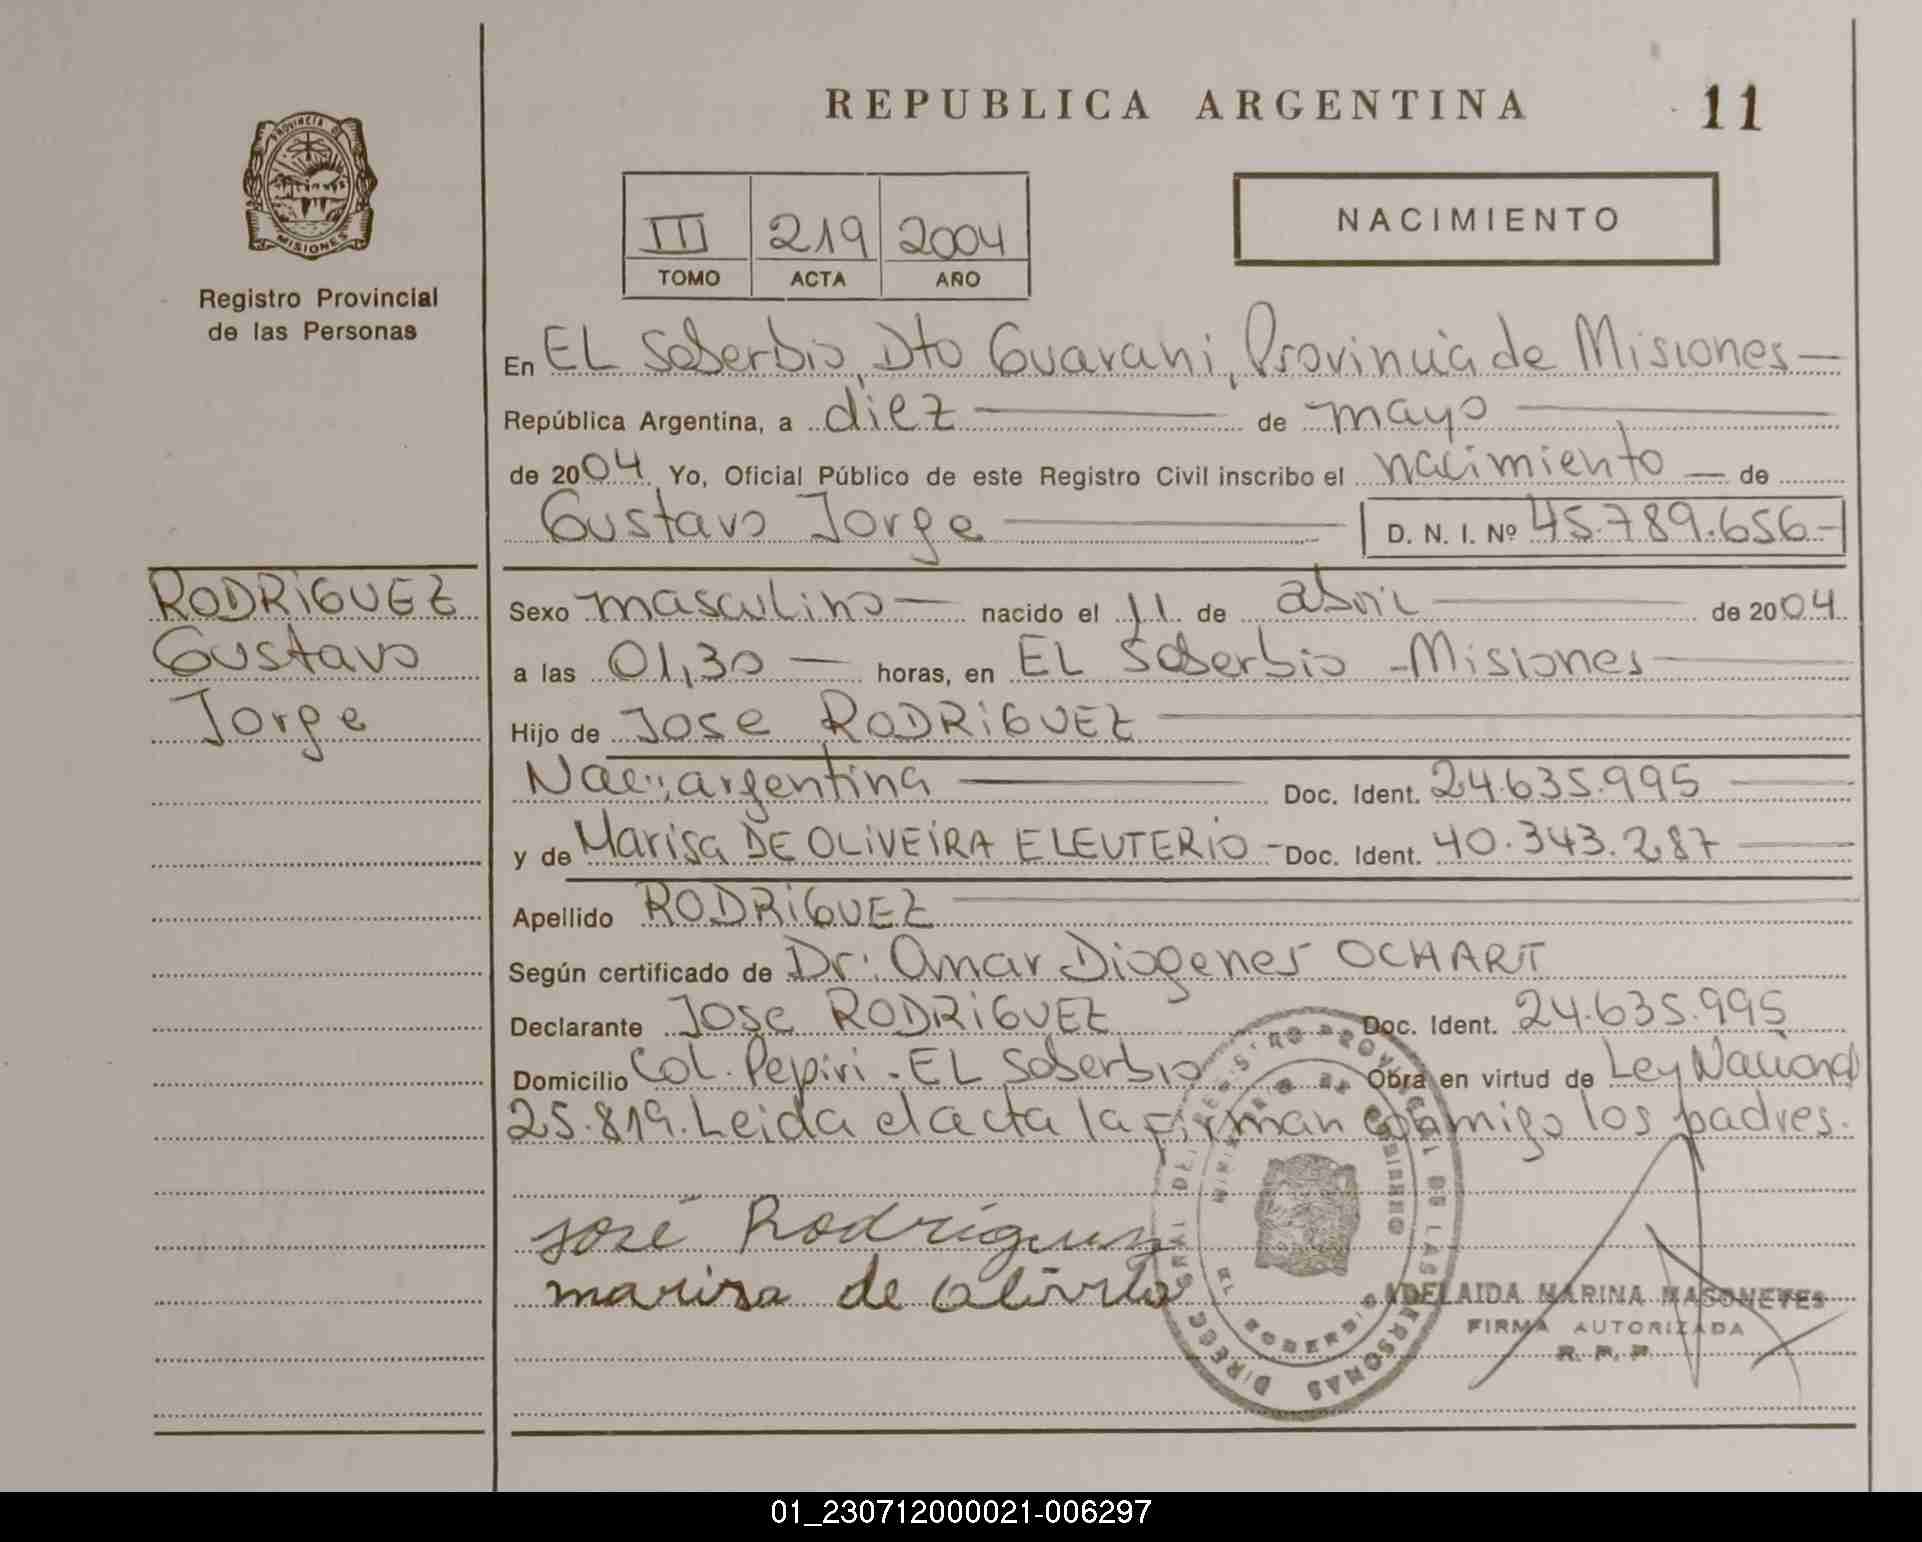 REPUBLICA ARGENTINA 11
PROVINCIA DE
MISIONES
III 219 2004
TOMO ACTA AÑO
NACIMIENTO
Registro Provincial
de las Personas
En EL Soberbio, Dto Guarani, Provincia de Misiones
República Argentina, a diez de mayo
de 2004 Yo, Oficial Público de este Registro Civil inscribo el nacimiento de
Gustavo Jorge D. N. I. Nº 45.789.656-
RODRiGUEZ
Gustavo
Jorge
Sexo masculino nacido el 11 de abril de 2004
a las 01,30 horas, en EL Soberbio - Misiones
Hijo de Jose RODRiGUEZ
Nac.: argentina Doc. Ident. 24.635.995
y de Marisa DE OLiVEiRA ELEUTERiO - Doc. Ident. 40.343.287
Apellido RODRiGUEZ
Según certificado de Dr. Omar Diogenes OCHART
Declarante Jose RODRiGUEZ Doc. Ident. 24.635.995
Domicilio Col. Pepiri - EL Soberbio Obra en virtud de Ley Nacional
25.819. Leida el acta la firman conmigo los padres.
José Rodriguez
marisa de
DIRECC GRAL DEL REGISTRO PROVINCIAL DE LAS PERSONAS
MINISTERIO DE GOBIERNO
EL SOBERBIO
ADELAIDA MARINA MASONEVES
FIRMA AUTORIZADA
R. P. P.
01_230712000021-006297